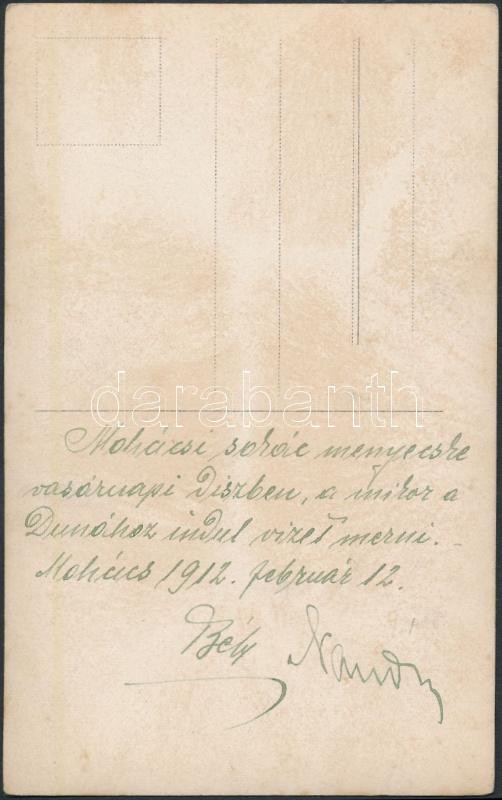 darabanth
Mohácsi sokác menyecske
vasárnapi Díszben, a mikor a
Dunához indul vizet merni. –
Mohács 1912. február 12.